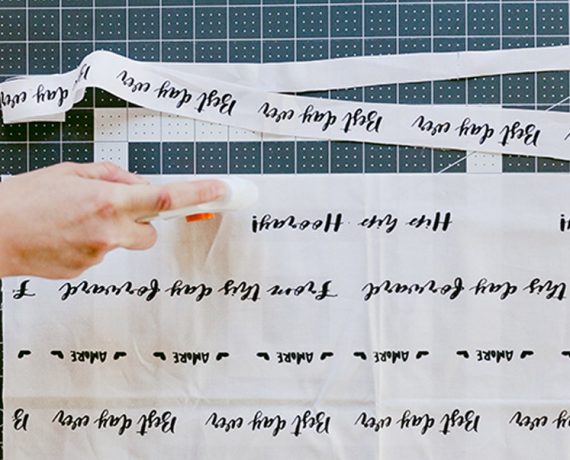 day ever Best day ever Best day ever Best day ever B
AMORE AMORE AMORE AMORE AMORE
this day forward From this day forward F
Hip hip Hooray!
Best day ever Best day ever Best day ever B
day ever